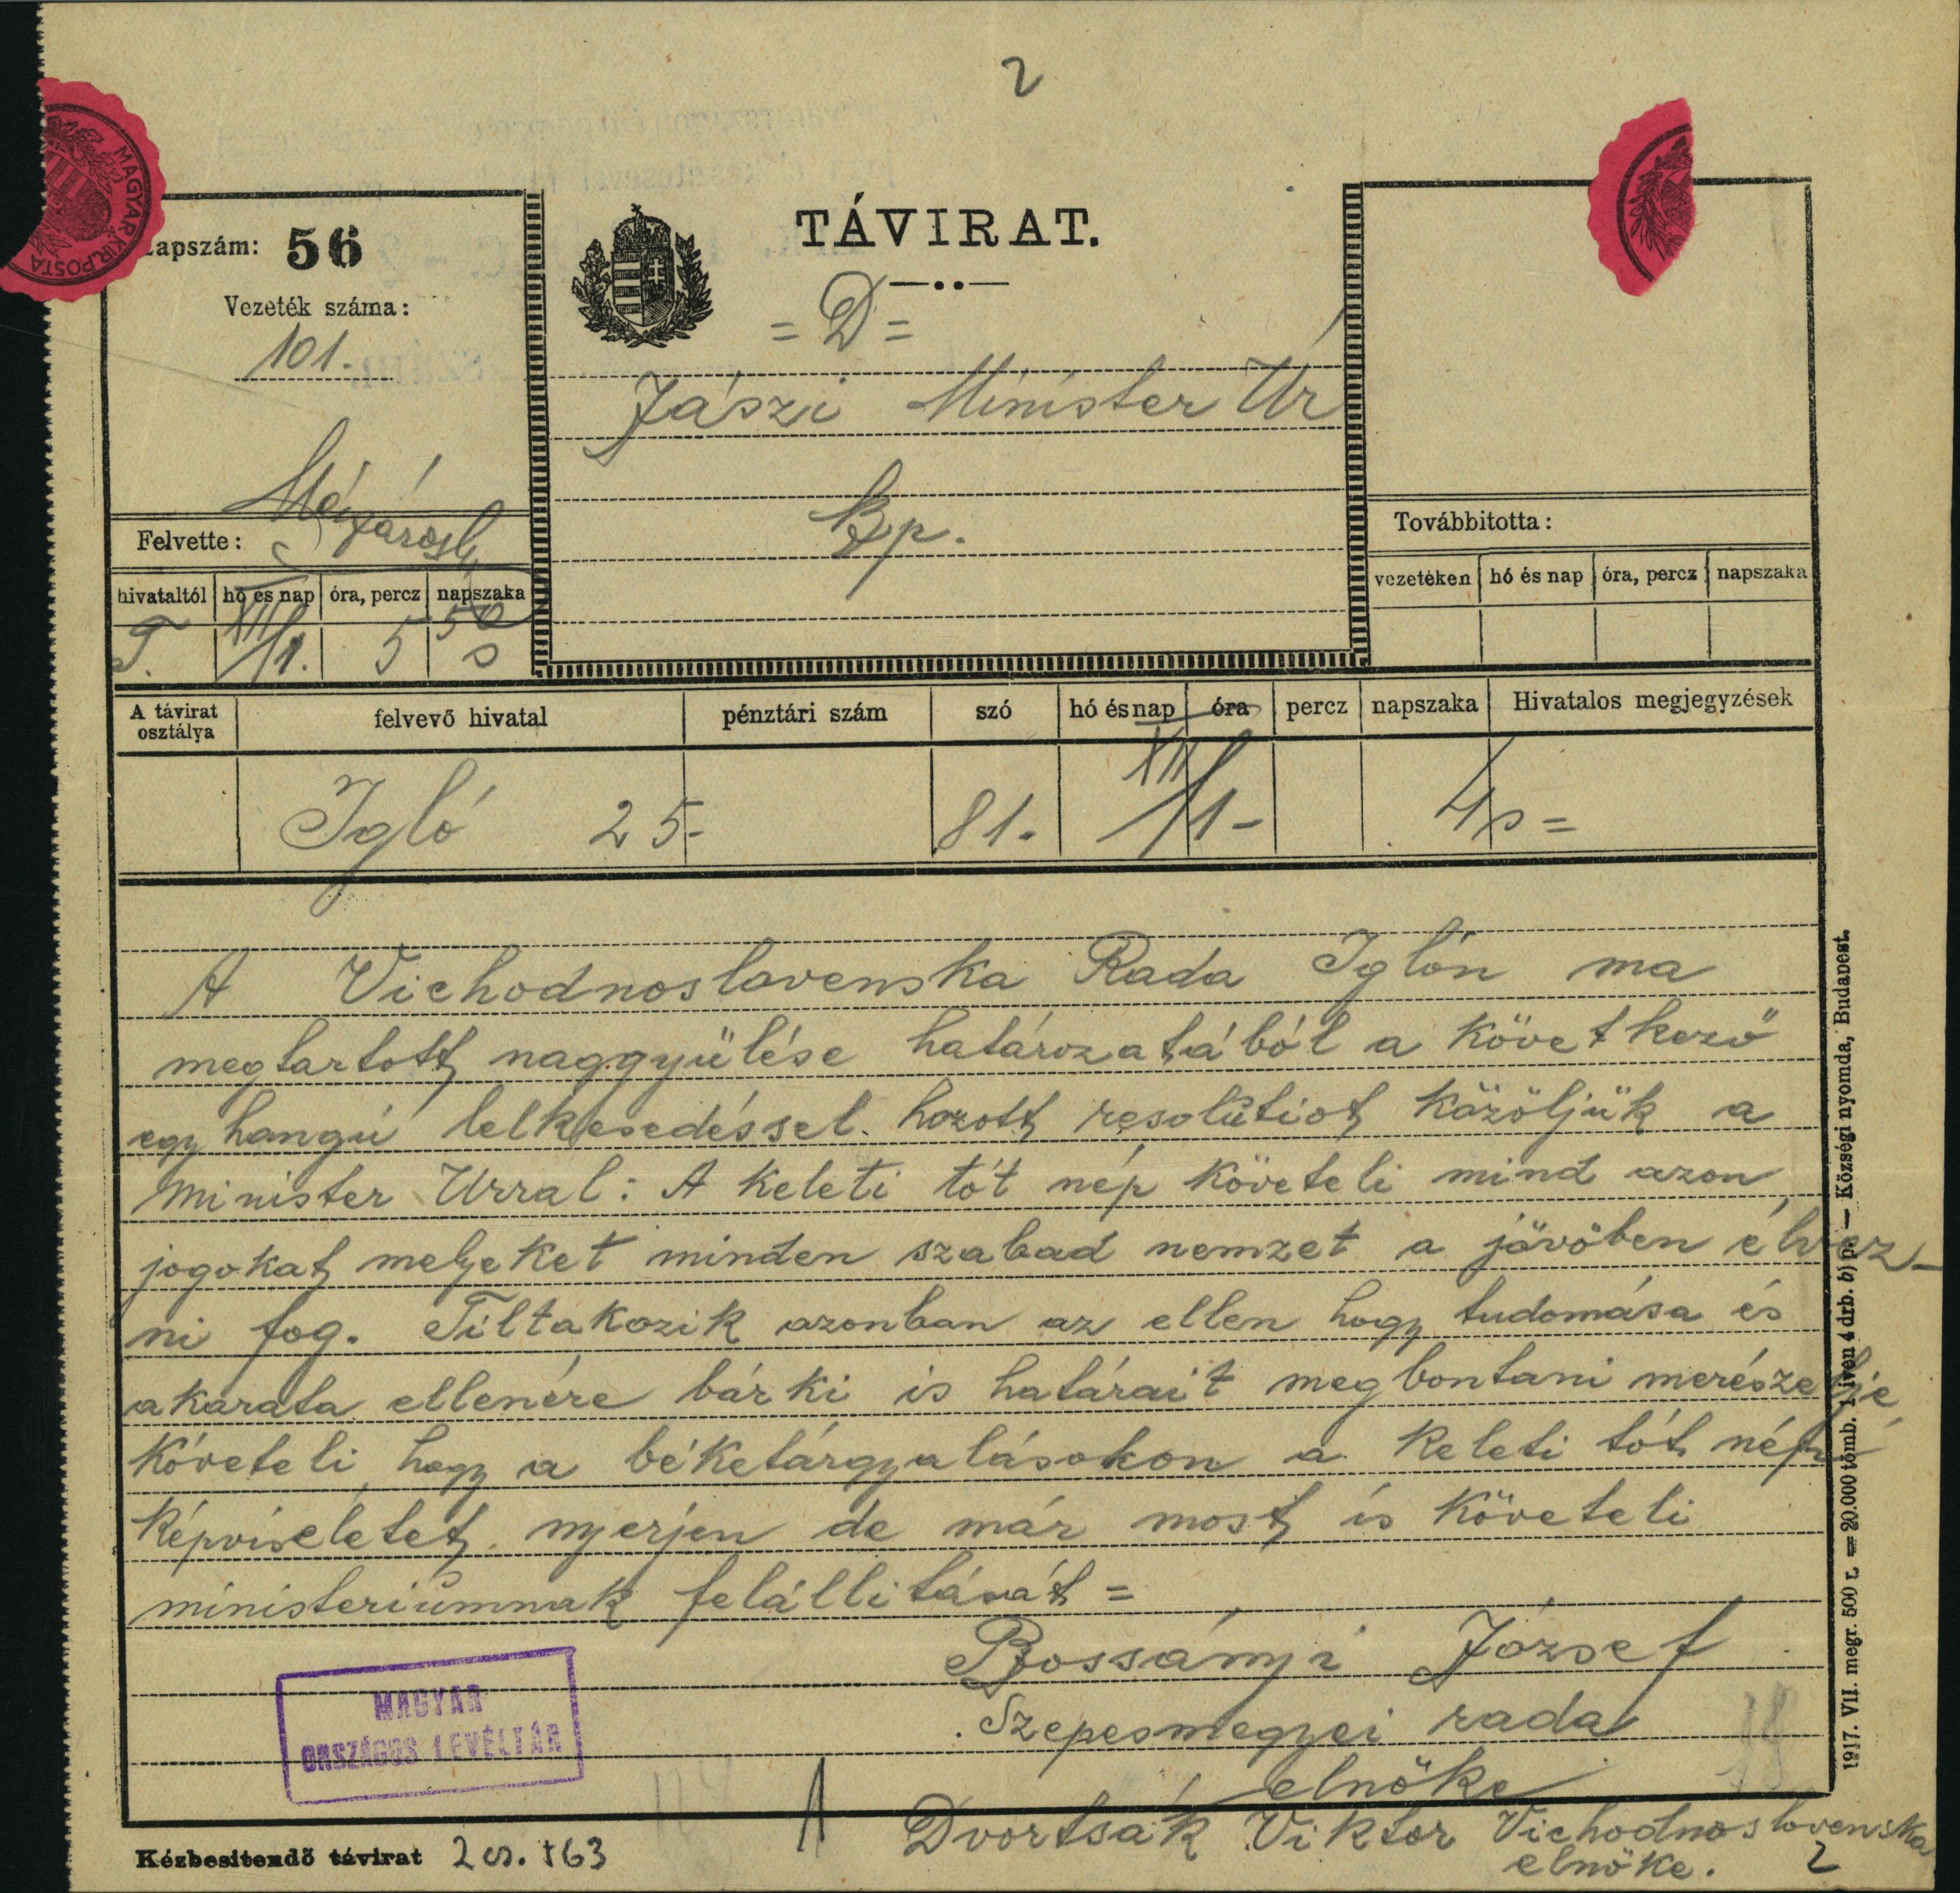 2
MAGYAR KIR. POSTA
Lapszám: 56
Vezeték száma:
101.
Felvette:
hivataltól hó és nap óra, percz napszaka
T. XII/1. 5 50
TÁVIRAT.
= D =
Jászi Minister Úr
Bp.
Továbbitotta:
vezetéken hó és nap óra, percz napszaka
A távirat osztálya felvevő hivatal pénztári szám szó hó és nap óra percz napszaka Hivatalos megjegyzések
Igló 25- 81. XII/1-
A Vichodnoslovenska Rada Iglón ma
megtartott naggyülése határozatából a következő
egyhangú lelkesedéssel hozott resolutiot közöljük a
Minister Urral: A keleti tót nép követeli mind azon
jogokat melyeket minden szabad nemzet a jövőben élvez-
ni fog. Tiltakozik azonban az ellen hogy tudomása és
akarata ellenére bárki is határait megbontani merészelje
követeli hogy a béketárgyalásokon a keleti tót nép
képviseletet nyerjen de már most is követeli
ministeriumnak felállitását =
Bossányi József
Szepesmegyei rada
elnöke
Dvortsák Viktor Vichodnoslovenska
elnöke.
2
MAGYAR
ORSZÁGOS LEVÉLTÁR
Kézbesitendő távirat 2 cs. 163
1917. VII. megr. 500 r. — 20.000 tömb. 1 iven 4 drb. b) p. — Községi nyomda, Budapest.